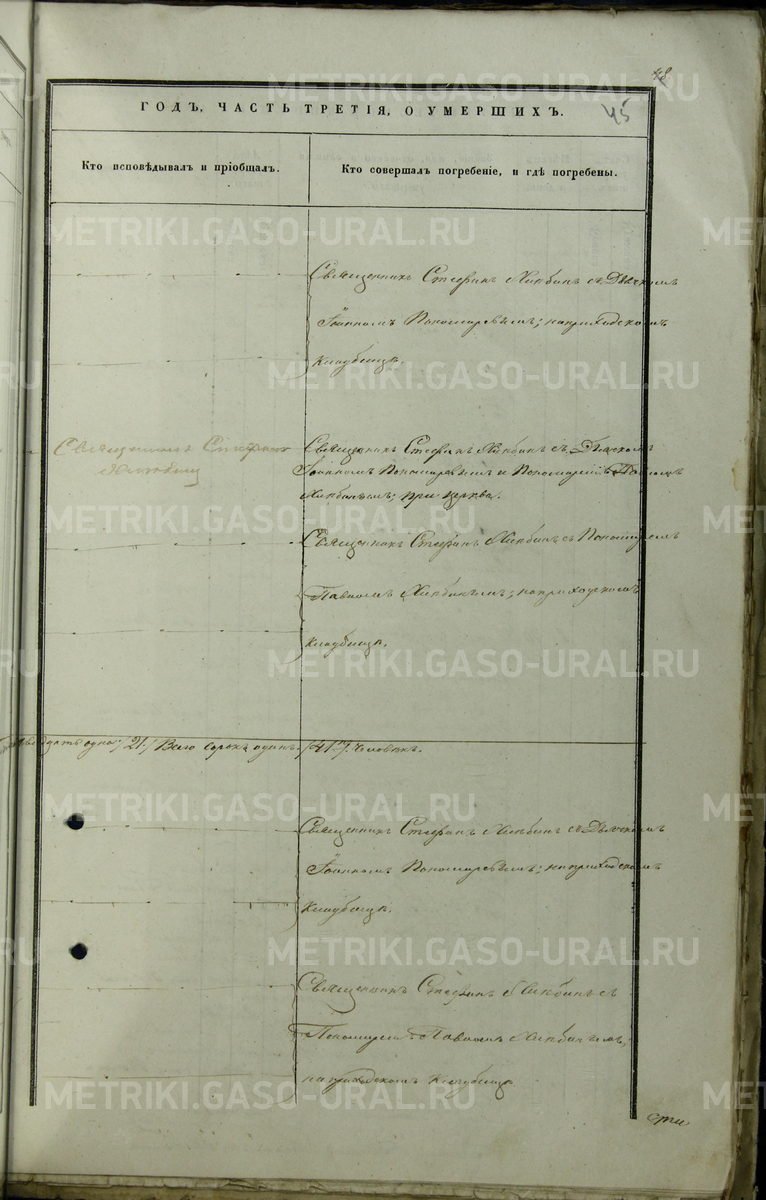 48
45
ГОДЪ, ЧАСТЬ ТРЕТІЯ, О УМЕРШИХЪ.
Кто исповѣдывалъ и пріобщалъ.
Кто совершалъ погребеніе, и гдѣ погребены.
Священникъ Стефанъ съ Дьячкомъ
Іоанномъ Пономаревымъ; на приходскомъ
кладбищѣ.
Священникъ Стефанъ
Священникъ Стефанъ съ Дьячкомъ
Іоанномъ Пономаревымъ и Пономаремъ
при церкви.
Священникъ Стефанъ съ Пономаремъ
Павломъ на приходскомъ
кладбищѣ.
двадцать одна /21./ Всего сорокъ одинъ /41./ человѣкъ.
Священникъ Стефанъ съ Дьячкомъ
Іоанномъ Пономаревымъ; на приходскомъ
кладбищѣ.
Священникъ Стефанъ съ
Пономаремъ Павломъ
на приходскомъ кладбищѣ
METRIKI.GASO-URAL.RU